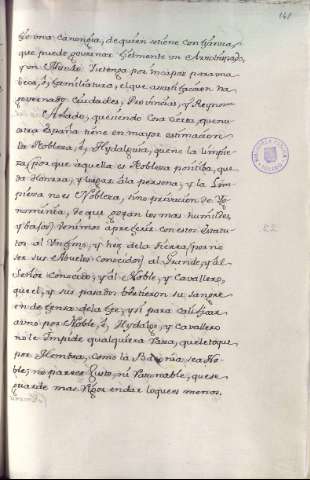 141
se una Canongia, de quien se tiene confianza,
que puede governar felizmente un Arzobispado,
y un Mundo. Se tenga por incapaz para una
beca, ó, familiatura, el que a satisfacion ha
governado Ciudades, Provincias, y Reynos.
Añado, que siendo cosa cierta, que nu=
estra España tiene en mayor estimacion
la Nobleza, ó, Hydalguia, que no la limpie=
za, porque aquella es Nobleza positiba, que
da Honrra, y lugar á la persona, y la Lim=
pieza no es Nobleza, sino privacion de Yg=
nominia, de que gozan los mas humildes,
y bajos; venimos a preferir con estos Estatu=
tos al Ynfimo, y hez de la tierra (por no
ser sus Abuelos conocidos) al Grande, y al
Señor Conocido, y al Noble, y Cavallero,
que el, y sus pasados vertieron su sangre
en defensa de la fee, y si para calificar
a uno por Noble, ó, Hydalgo, y cavallero
no le Impide qualquiera Raza, que le toque
por Hembra, como la Varonia, sea No=
ble; no parece Justo, ni Razonable, que se
guarde mas Rigor en dar lo que es menos,
22